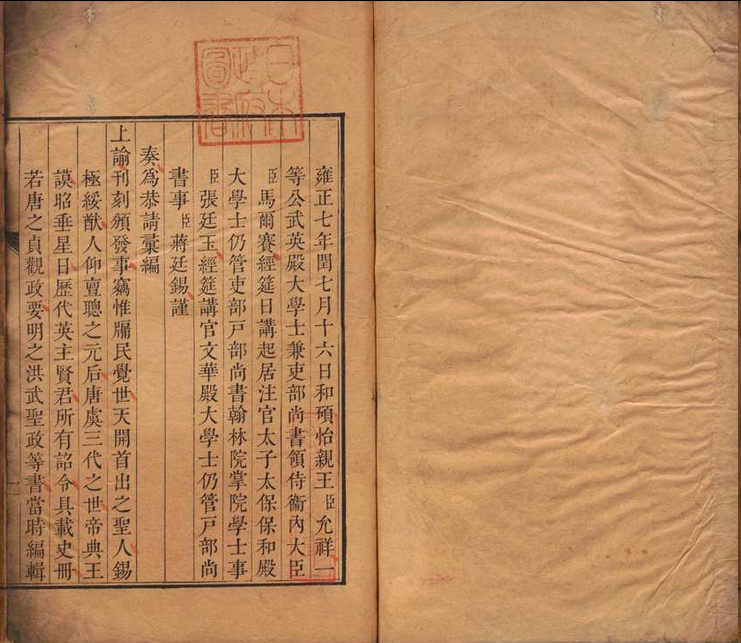 日本
政府
圖書
雍正七年閏七月十六日和碩怡親王臣允祥一
等公武英殿大學士兼吏部尚書領侍衞內大臣
臣馬爾賽經筵日講起居注官太子太保保和殿
大學士仍管吏部戸部尚書翰林院掌院學士事
臣張廷玉經筵講官文華殿大學士仍管戸部尚
書事臣蔣廷錫謹
奏爲恭請彙編
上諭刊刻頒發事竊惟牖民覺世天開首出之聖人錫
極綏猷人仰亶聰之元后唐虞三代之世帝典王
謨昭垂星日歷代英主賢君所有詔令具載史冊
若唐之貞觀政要明之洪武聖政等書當時編輯